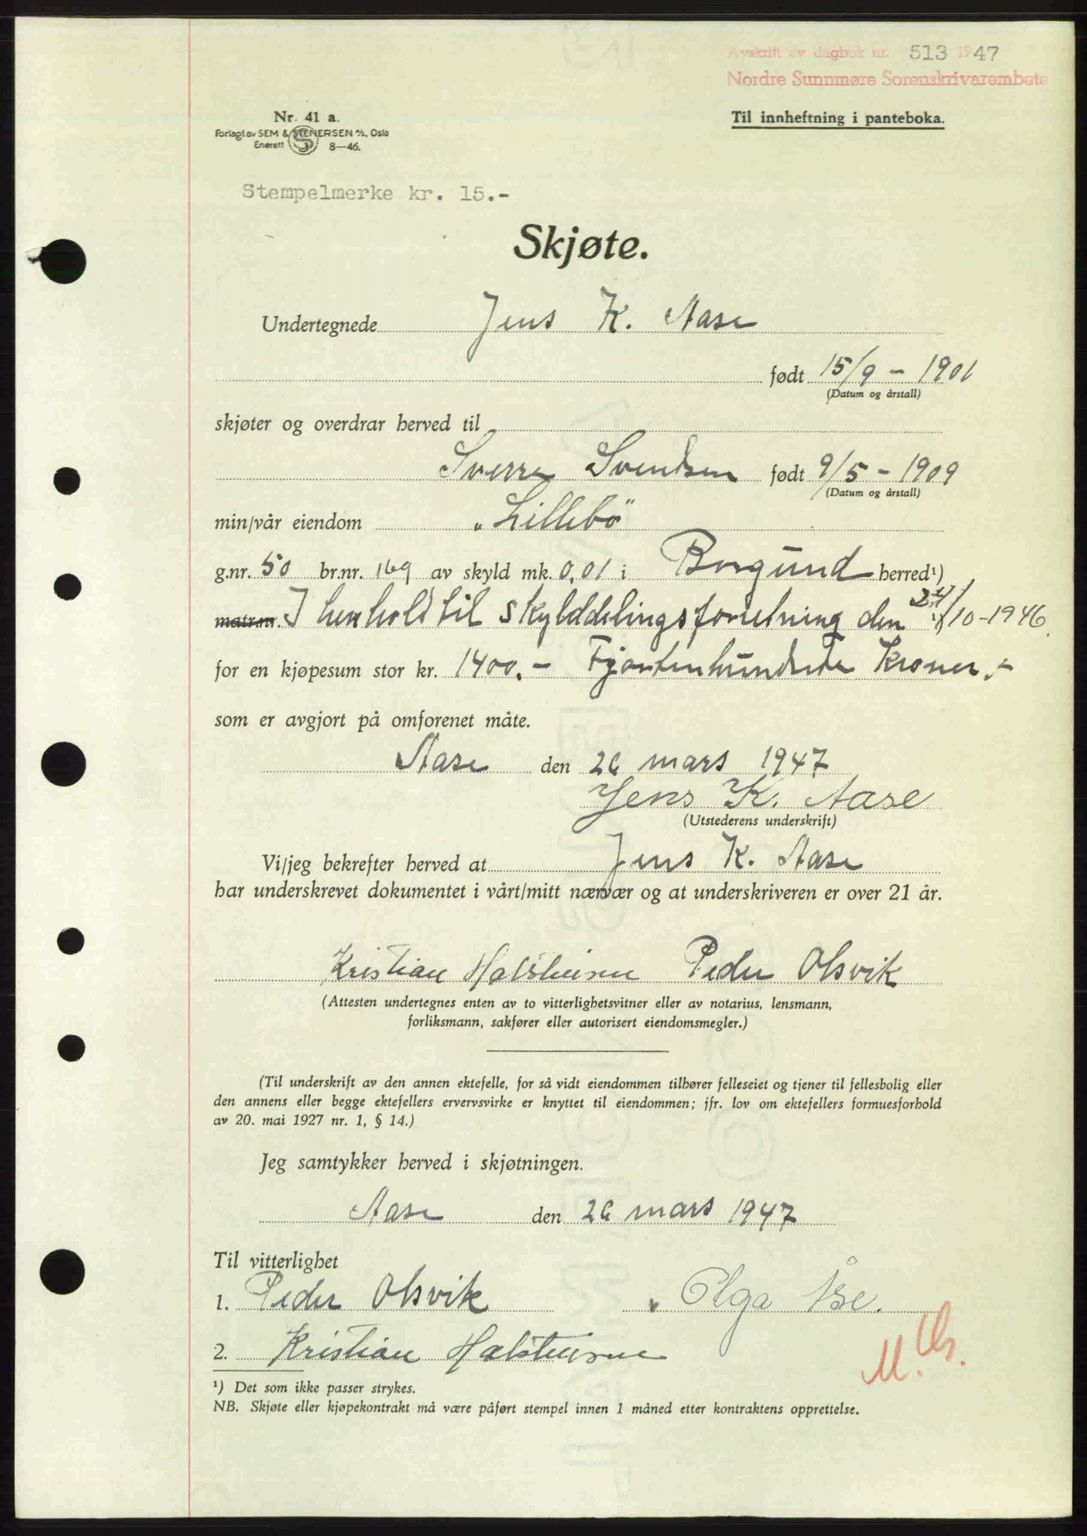 Avskrift av dagbok nr. 513 1947
Nordre Sunnmøre Sorenskriverembete
Nr. 41 a.
Forlagt av SEM & STENERSEN A/S, Oslo
Enerett S 8—46.
Til innheftning i panteboka.
Stempelmerke kr. 15.-
Skjøte.
Undertegnede Jens K. Aase
født 15/9 - 1901
(Datum og årstall)
skjøter og overdrar herved til
Sverre Svendsen født 9/5 - 1909
(Datum og årstall)
min/vår eiendom "Lillebö"
g.nr. 50 br.nr. 169 av skyld mk. 0,01 i Borgund herred¹)
matr.nr. I henhold til skylddelingsforretning den /10-1946.
for en kjøpesum stor kr. 1400.- Fjortenhundrede Kroner.-
som er avgjort på omforenet måte.
Aase den 26 mars 1947
Jens K. Aase
(Utstederens underskrift)
Vi/jeg bekrefter herved at Jens K. Aase
har underskrevet dokumentet i vårt/mitt nærvær og at underskriveren er over 21 år.
Kristian Peder Olsvik
(Attesten undertegnes enten av to vitterlighetsvitner eller av notarius, lensmann,
forliksmann, sakfører eller autorisert eiendomsmegler.)
(Til underskrift av den annen ektefelle, for så vidt eiendommen tilhører felleseiet og tjener til fellesbolig eller
den annens eller begge ektefellers ervervsvirke er knyttet til eiendommen; jfr. lov om ektefellers formuesforhold
av 20. mai 1927 nr. 1, § 14.)
Jeg samtykker herved i skjøtningen.
Aase den 26 mars 1947
Til vitterlighet
1. Peder Olsvik " Olga Åse.
2. Kristian
¹) Det som ikke passer strykes.
NB. Skjøte eller kjøpekontrakt må være påført stempel innen 1 måned etter kontraktens opprettelse.